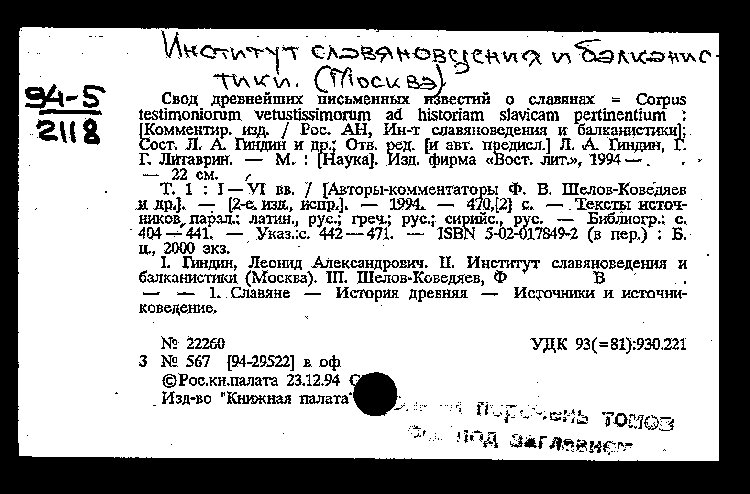 Институт славяноведения и балканис-
тики. (Москва).
94-5
2118
Свод древнейших письменных известий о славянах = Corpus
testimoniorum vetustissimorum ad historiam slavicam pertinentium :
[Комментир. изд. / Рос. АН, Ин-т славяноведения и балканистики];
Сост. Л. А. Гиндин и др.; Отв. ред. [и авт. предисл.] Л. А. Гиндин, Г.
Г. Литаврин. — М. : [Наука]. Изд. фирма «Вост. лит.», 1994 — .
— 22 см.
Т. 1 : I — VI вв. / [Авторы-комментаторы Ф. В. Шелов-Коведяев
и др.]. — [2-е изд., испр.]. — 1994. — 470,[2] с. — Тексты источ-
ников парал.: латин., рус.; греч.; рус.; сирийс., рус. — Библиогр.: с.
404 — 441. — Указ.:с. 442 — 471. — ISBN 5-02-017849-2 (в пер.) : Б.
ц., 2000 экз.
I. Гиндин, Леонид Александрович. II. Институт славяноведения и
балканистики (Москва). III. Шелов-Коведяев, Ф В .
— — 1. Славяне — История древняя — Источники и источни-
коведение.
№ 22260 УДК 93(=81):930.221
3 № 567 [94-29522] в оф
©Рос.кн.палата 23.12.94
Изд-во "Книжная палата"
перечень томов
под заглавием